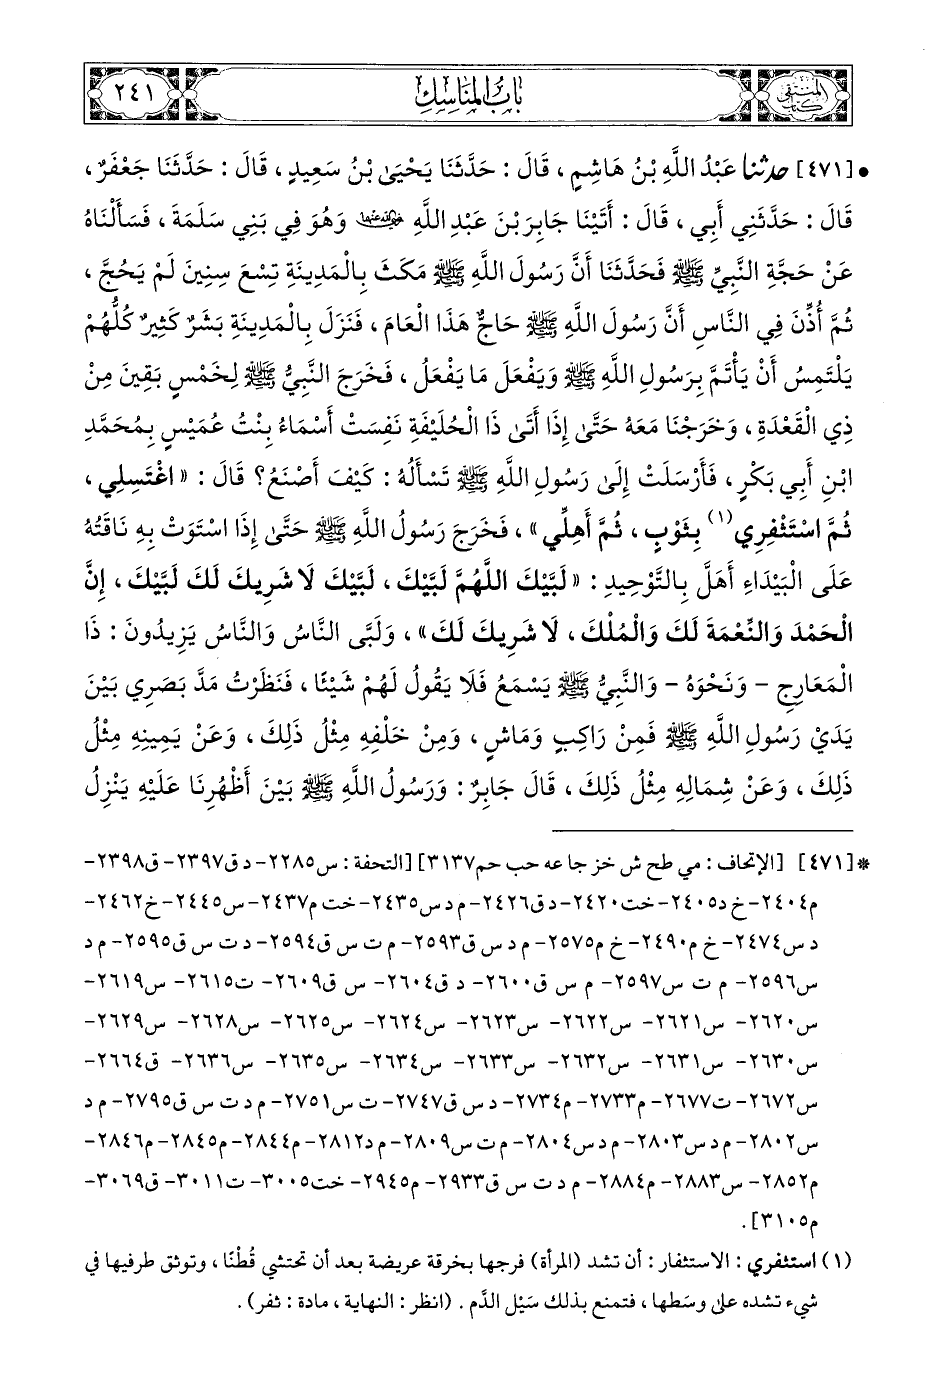 المنتقى كتاب
باب المناسك
٢٤١
• [٤٧١] حدثنا عَبْدُ اللَّهِ بْنُ هَاشِمٍ ، قَالَ : حَدَّثَنَا يَحْيَىٰ بْنُ سَعِيدٍ ، قَالَ : حَدَّثَنَا جَعْفَرٌ ،
قَالَ : حَدَّثَنِي أَبِي ، قَالَ : أَتَيْنَا جَابِرَ بْنَ عَبْدِ اللَّهِ رضي الله عنهما وَهُوَ فِي بَنِي سَلَمَةَ ، فَسَأَلْنَاهُ
عَنْ حَجَّةِ النَّبِيِّ ﷺ فَحَدَّثَنَا أَنَّ رَسُولَ اللَّهِ ﷺ مَكَثَ بِالْمَدِينَةِ تِسْعَ سِنِينَ لَمْ يَحُجَّ ،
ثُمَّ أُذِّنَ فِي النَّاسِ أَنَّ رَسُولَ اللَّهِ ﷺ حَاجٌّ هَذَا الْعَامَ ، فَنَزَلَ بِالْمَدِينَةِ بَشَرٌ كَثِيرٌ كُلُّهُمْ
يَلْتَمِسُ أَنْ يَأْتَمَّ بِرَسُولِ اللَّهِ ﷺ وَيَفْعَلَ مَا يَفْعَلُ ، فَخَرَجَ النَّبِيُّ ﷺ لِخَمْسٍ بَقِينَ مِنْ
ذِي الْقَعْدَةِ ، وَخَرَجْنَا مَعَهُ حَتَّىٰ إِذَا أَتَىٰ ذَا الْحُلَيْفَةِ نَفِسَتْ أَسْمَاءُ بِنْتُ عُمَيْسٍ بِمُحَمَّدِ
ابْنِ أَبِي بَكْرٍ ، فَأَرْسَلَتْ إِلَىٰ رَسُولِ اللَّهِ ﷺ تَسْأَلُهُ : كَيْفَ أَصْنَعُ؟ قَالَ : « اغْتَسِلِي ،
ثُمَّ اسْتَثْفِرِي(١) بِثَوْبٍ ، ثُمَّ أَهِلِّي » ، فَخَرَجَ رَسُولُ اللَّهِ ﷺ حَتَّىٰ إِذَا اسْتَوَتْ بِهِ نَاقَتُهُ
عَلَى الْبَيْدَاءِ أَهَلَّ بِالتَّوْحِيدِ : « لَبَّيْكَ اللَّهُمَّ لَبَّيْكَ ، لَبَّيْكَ لَا شَرِيكَ لَكَ لَبَّيْكَ ، إِنَّ
الْحَمْدَ وَالنِّعْمَةَ لَكَ وَالْمُلْكَ ، لَا شَرِيكَ لَكَ » ، وَلَبَّى النَّاسُ وَالنَّاسُ يَزِيدُونَ : ذَا
الْمَعَارِجِ - وَنَحْوَهُ - وَالنَّبِيُّ ﷺ يَسْمَعُ فَلَا يَقُولُ لَهُمْ شَيْئًا ، فَنَظَرْتُ مَدَّ بَصَرِي بَيْنَ
يَدَيْ رَسُولِ اللَّهِ ﷺ فَمِنْ رَاكِبٍ وَمَاشٍ ، وَمِنْ خَلْفِهِ مِثْلُ ذَلِكَ ، وَعَنْ يَمِينِهِ مِثْلُ
ذَلِكَ ، وَعَنْ شِمَالِهِ مِثْلُ ذَلِكَ ، قَالَ جَابِرٌ : وَرَسُولُ اللَّهِ ﷺ بَيْنَ أَظْهُرِنَا عَلَيْهِ يَنْزِلُ
* [٤٧١] [الإتحاف : مي طح ش خز جا عه حب حم٣١٣٧] [التحفة : س٢٢٨٥- د ق٢٣٩٧- ق٢٣٩٨-
م٢٤٠٤- خ د٢٤٠٥- خت٢٤٢٠- د ق٢٤٢٦- م د س٢٤٣٥- خت م٢٤٣٧- س٢٤٤٥- خ٢٤٦٢-
د س٢٤٧٤- خ م٢٤٩٠- خ م٢٥٧٥- م د س ق٢٥٩٣- م ت س ق٢٥٩٤- د ت س ق٢٥٩٥- م د
س٢٥٩٦- م ت س٢٥٩٧- م س ق٢٦٠٠- د ق٢٦٠٤- س ق٢٦٠٩- ت٢٦١٥- س٢٦١٩-
س٢٦٢٠- س٢٦٢١- س٢٦٢٢- س٢٦٢٣- س٢٦٢٤- س٢٦٢٥- س٢٦٢٨- س٢٦٢٩-
س٢٦٣٠- س٢٦٣١- س٢٦٣٢- س٢٦٣٣- س٢٦٣٤- س٢٦٣٥- س٢٦٣٦- ق٢٦٦٤-
س٢٦٧٢- ت٢٦٧٧- م٢٧٣٣- م٢٧٣٤- د س ق٢٧٤٧- ت س٢٧٥١- م د ت س ق٢٧٩٥- م د
س٢٨٠٢- م د س٢٨٠٣- م د س٢٨٠٤- م ت س٢٨٠٩- م د٢٨١٢- م٢٨٤٤- م٢٨٤٥- م٢٨٤٦-
م٢٨٥٢- س٢٨٨٣- م٢٨٨٤- م د ت س ق٢٩٣٣- م٢٩٤٥- خت٣٠٠٥- ت٣٠١١- ق٣٠٦٩-
م٣١٠٥] .
(١) استثفري : الاستثفار : أن تشد (المرأة) فرجها بخرقة عريضة بعد أن تحتشي قُطْنًا ، وتوثق طرفيها في
شيء تشده على وسَطها ، فتمنع بذلك سَيْل الدَّم . (انظر : النهاية ، مادة : ثفر) .